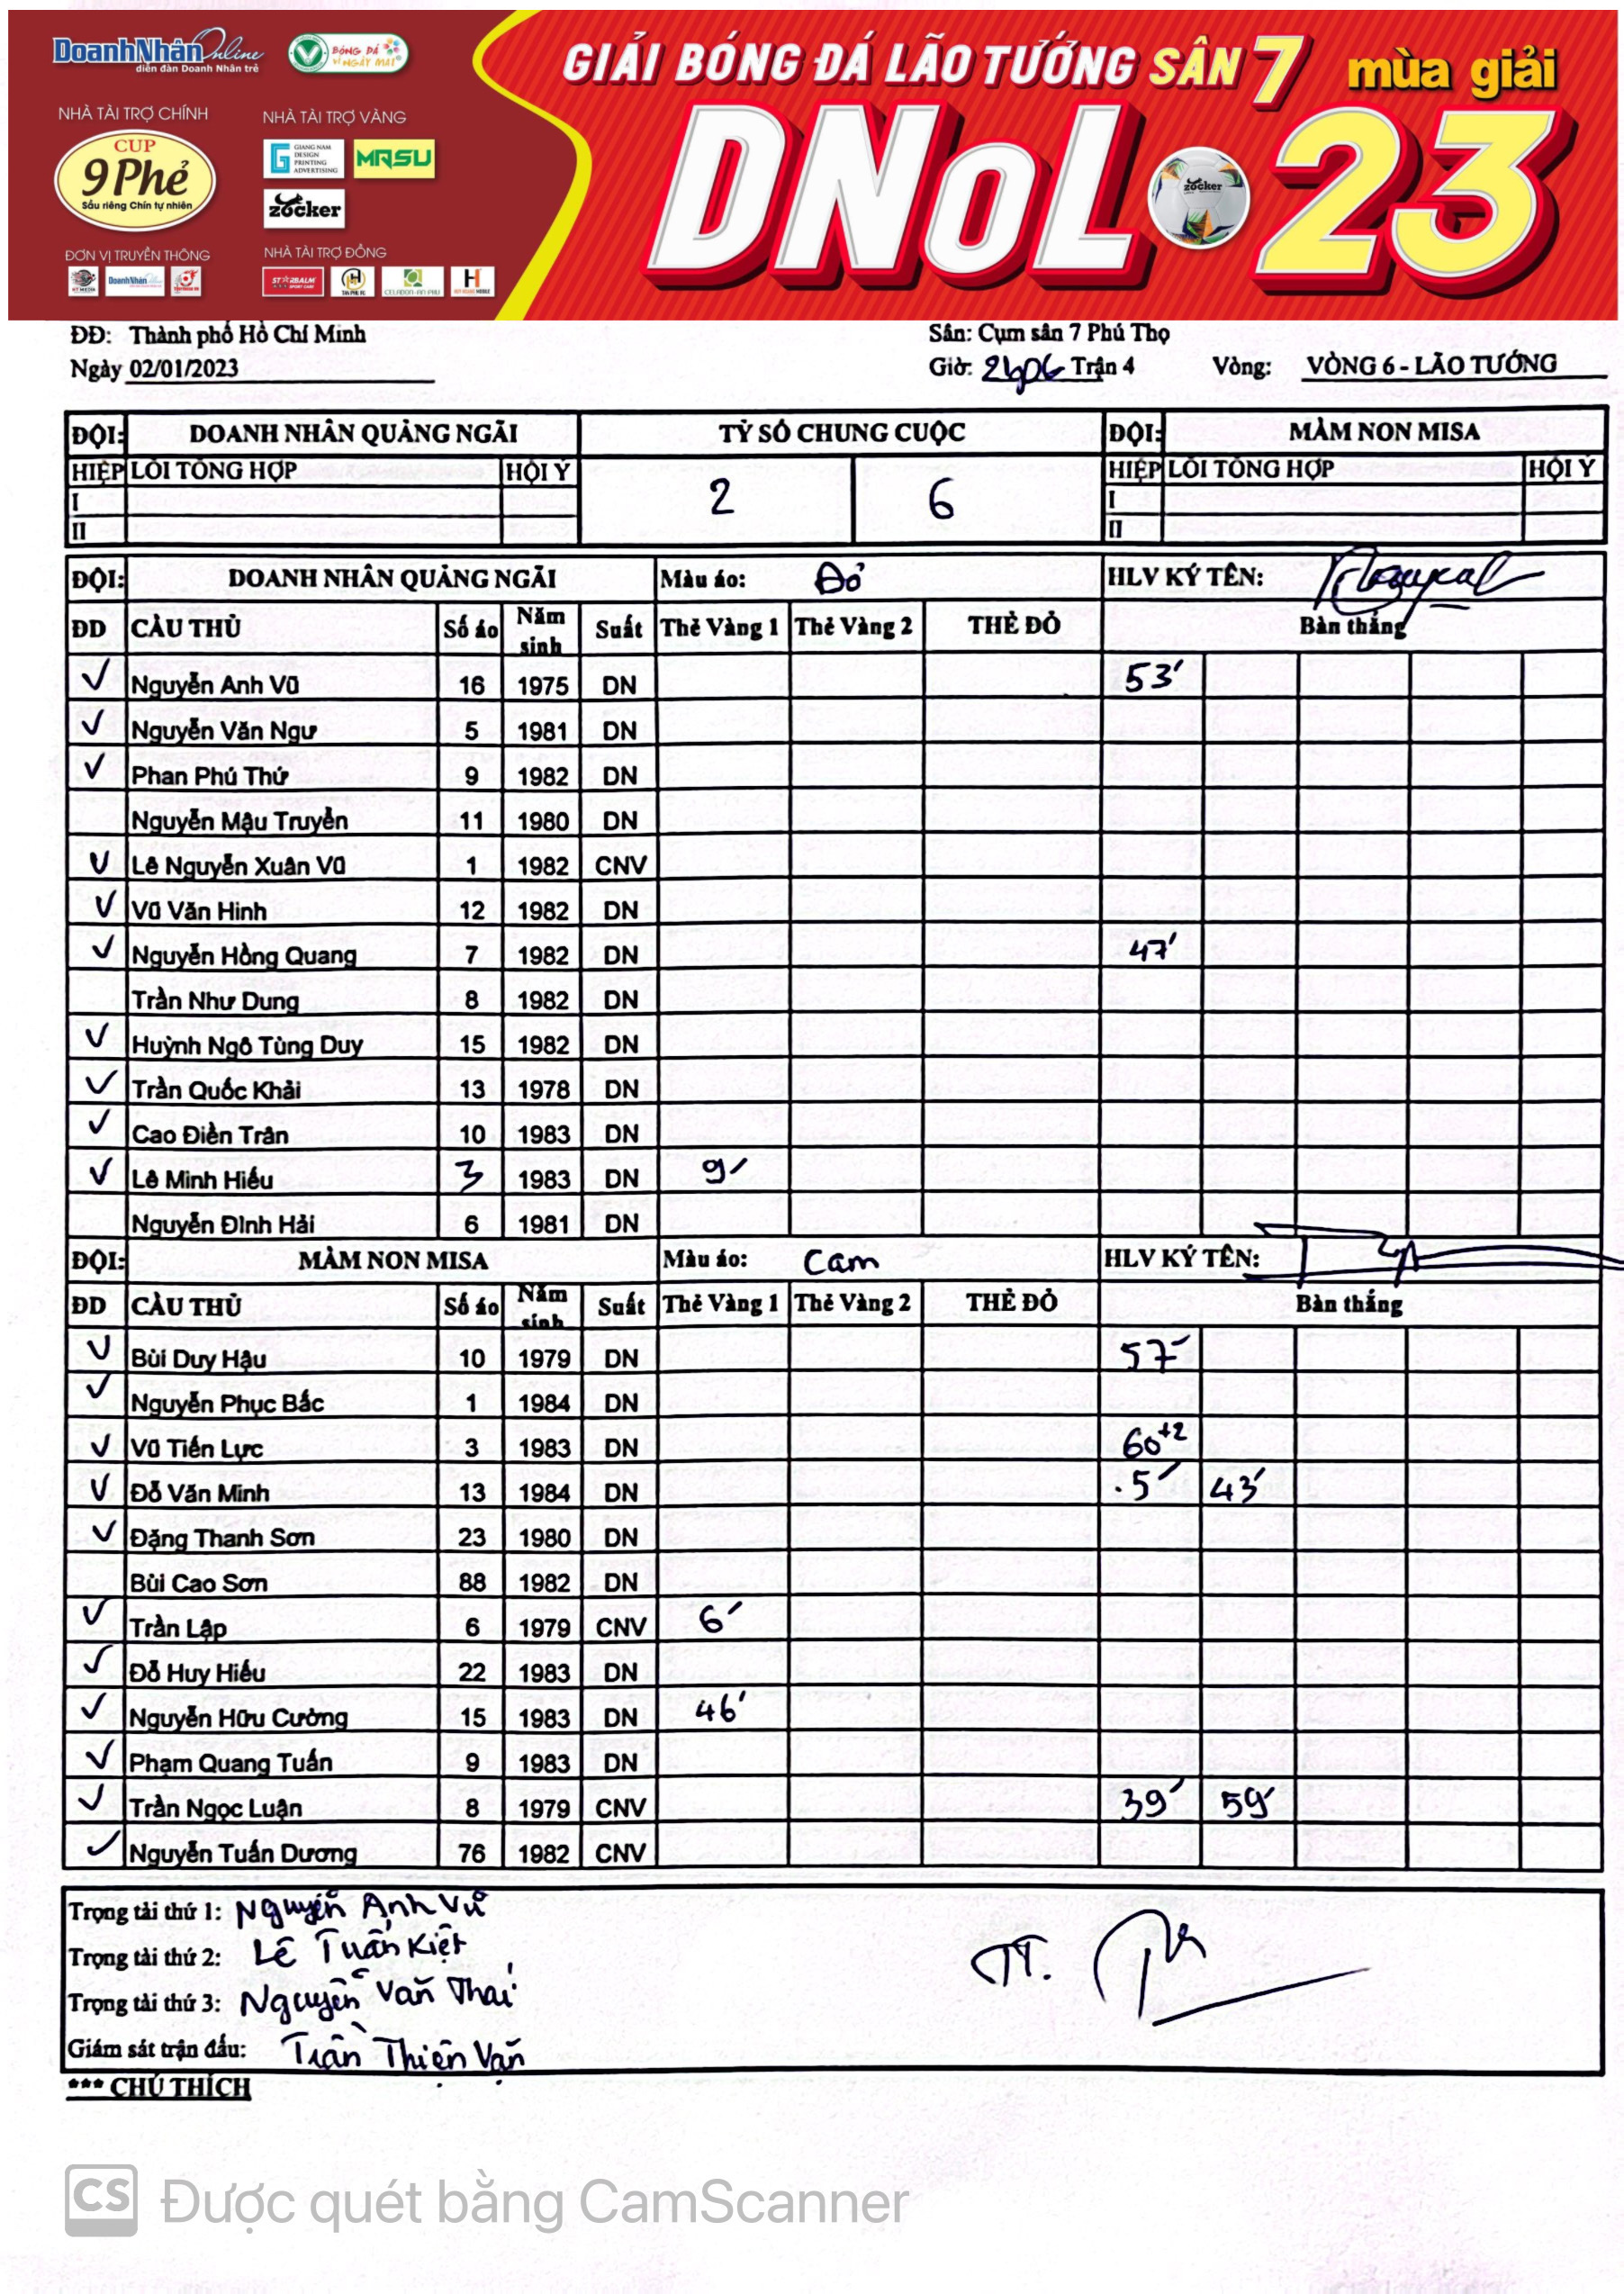 DoanhNhân Online
diễn đàn Doanh Nhân trẻ
BÓNG ĐÁ
VÌ NGÀY MAI
GIẢI BÓNG ĐÁ LÃO TƯỚNG SÂN 7 mùa giải
DNOL 23
zocker
NHÀ TÀI TRỢ CHÍNH
CUP
9 Phẻ
Sầu riêng Chín tự nhiên
NHÀ TÀI TRỢ VÀNG
GIANG NAM
DESIGN
PRINTING
ADVERTISING
MRSU
zocker
ĐƠN VỊ TRUYỀN THÔNG
DoanhNhân
NHÀ TÀI TRỢ ĐỒNG
STARBALM
CELADON-AN PHU
ĐĐ: Thành phố Hồ Chí Minh Sân: Cụm sân 7 Phú Thọ
Ngày 02/01/2023 Giờ: Trận 4 Vòng: VÒNG 6 - LÃO TƯỚNG
ĐỘI: DOANH NHÂN QUẢNG NGÃI TỶ SỐ CHUNG CUỘC ĐỘI: MẦM NON MISA
HIỆP LỖI TỔNG HỢP HỘI Ý 2 6 HIỆP LỖI TỔNG HỢP HỘI Ý
I I
II II
ĐỘI: DOANH NHÂN QUẢNG NGÃI Màu áo: Đỏ HLV KÝ TÊN:
ĐD CẦU THỦ Số áo Năm sinh Suất Thẻ Vàng 1 Thẻ Vàng 2 THẺ ĐỎ Bàn thắng
✓ Nguyễn Anh Vũ 16 1975 DN 53'
✓ Nguyễn Văn Ngư 5 1981 DN
✓ Phan Phú Thứ 9 1982 DN
Nguyễn Mậu Truyền 11 1980 DN
✓ Lê Nguyễn Xuân Vũ 1 1982 CNV
✓ Vũ Văn Hinh 12 1982 DN
✓ Nguyễn Hồng Quang 7 1982 DN 47'
Trần Như Dung 8 1982 DN
✓ Huỳnh Ngô Tùng Duy 15 1982 DN
✓ Trần Quốc Khải 13 1978 DN
✓ Cao Điền Trân 10 1983 DN
✓ Lê Minh Hiếu 3 1983 DN 9'
Nguyễn Đình Hải 6 1981 DN
ĐỘI: MẦM NON MISA Màu áo: Cam HLV KÝ TÊN:
ĐD CẦU THỦ Số áo Năm sinh Suất Thẻ Vàng 1 Thẻ Vàng 2 THẺ ĐỎ Bàn thắng
✓ Bùi Duy Hậu 10 1979 DN 57'
✓ Nguyễn Phục Bắc 1 1984 DN
✓ Vũ Tiến Lực 3 1983 DN 60+2
✓ Đỗ Văn Minh 13 1984 DN 5' 43'
✓ Đặng Thanh Sơn 23 1980 DN
Bùi Cao Sơn 88 1982 DN
✓ Trần Lập 6 1979 CNV 6'
✓ Đỗ Huy Hiếu 22 1983 DN
✓ Nguyễn Hữu Cường 15 1983 DN 46'
✓ Phạm Quang Tuấn 9 1983 DN
✓ Trần Ngọc Luận 8 1979 CNV 39' 59'
✓ Nguyễn Tuấn Dương 76 1982 CNV
Trọng tài thứ 1: Nguyễn Anh Vũ
Trọng tài thứ 2: Lê Tuấn Kiệt
Trọng tài thứ 3: Nguyễn Văn Thái
Giám sát trận đấu: Trần Thiện Vạn
*** CHÚ THÍCH
CS Được quét bằng CamScanner